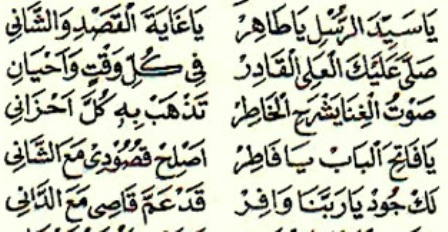 يَاسَيِّدَ الرُّسْلِ يَاطَاهِرْ يَاغَايَةَ الْقَصْدِ وَالشَّانِي
صَلَّى عَلَيْكَ الْعَلِي الْقَادِرْ فِي كُلِّ وَقْتٍ وَاَحْيَانِ
صَوْتُ الْغِنَا يَشْرَحِ الْخَاطِرْ تَذْهَبْ بِهِ كُلَّ اَحْزَانِي
يَافَاتِحَ الْبَابْ يَا فَاطِرْ اَصْلِحْ قُصُوْدِيْ مَعَ الشَّانِي
لَكْ جُوْدْ يَارَبَّنَا وَافِرْ قَدْ عَمَّ قَاصِى مَعَ الدَّانِي